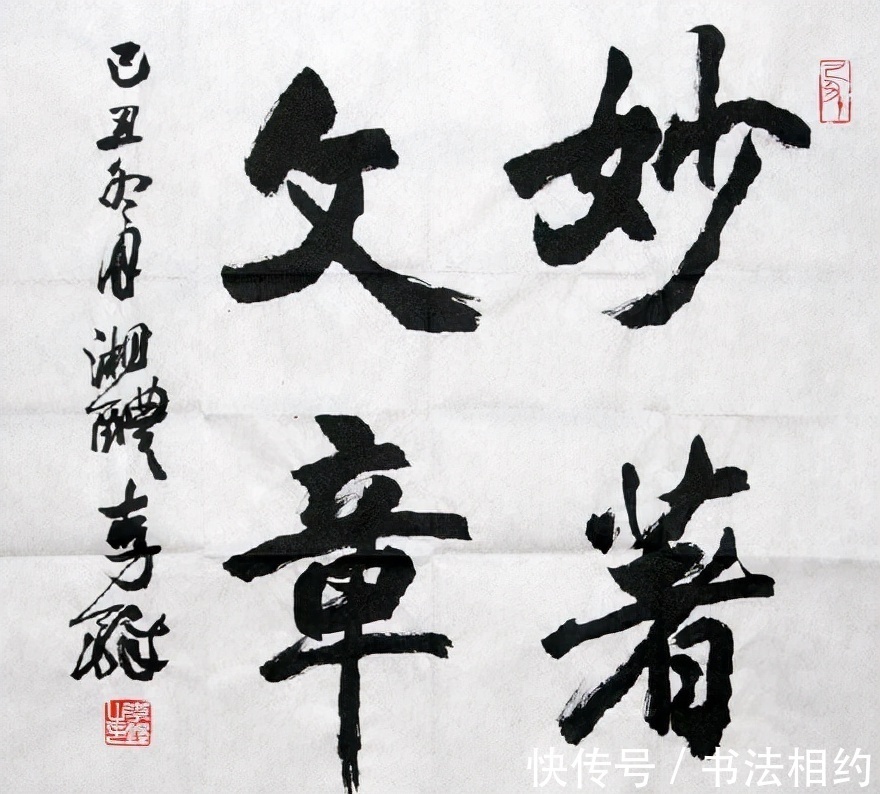 妙著
文章
己丑冬月湘醴李鐸
快传号 / 书法相约